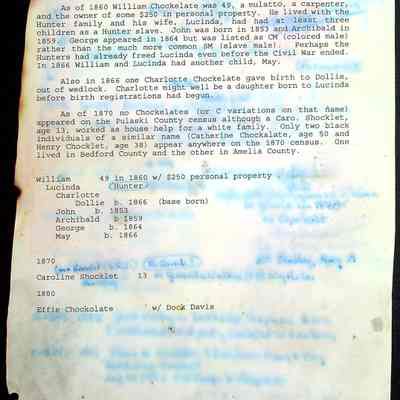 As of 1860 William Chockelate was 49, a mulatto, a carpenter,
and the owner of some $250 in personal property. He lived with the
Hunter family and his wife, Lucinda, had had at least three
children as a Hunter slave. John was born in 1853 and Archibald in
1859. George appeared in 1864 but was listed as CM (colored male)
rather than the much more common SM (slave male). Perhaps the
Hunters had already freed Lucinda even before the Civil War ended.
In 1866 William and Lucinda had another child, May.
Also in 1866 one Charlotte Chockelate gave birth to Dollie,
out of wedlock. Charlotte might well be a daughter born to Lucinda
before birth registrations had begun.
As of 1870 no Chockelates (or C variations on that name)
appeared on the Pulaski County census although a Caro. Shocklet,
age 13, worked as house help for a white family. Only two black
individuals of a similar name (Catherine Chockalate, age 50 and
Henry Chockolate, age 38) appear anywhere on the 1870 census. One
lived in Bedford County and the other in Amelia County.
William 49 in 1860 w/ $250 personal property
Lucinda (Hunter)
Charlotte
Dollie b. 1866 (base born)
John b. 1853
Archibald b 1859
George b. 1864
May b. 1866
1870
Caroline Shocklet 13
1880
Effie Chockolate w/ Dock Davis